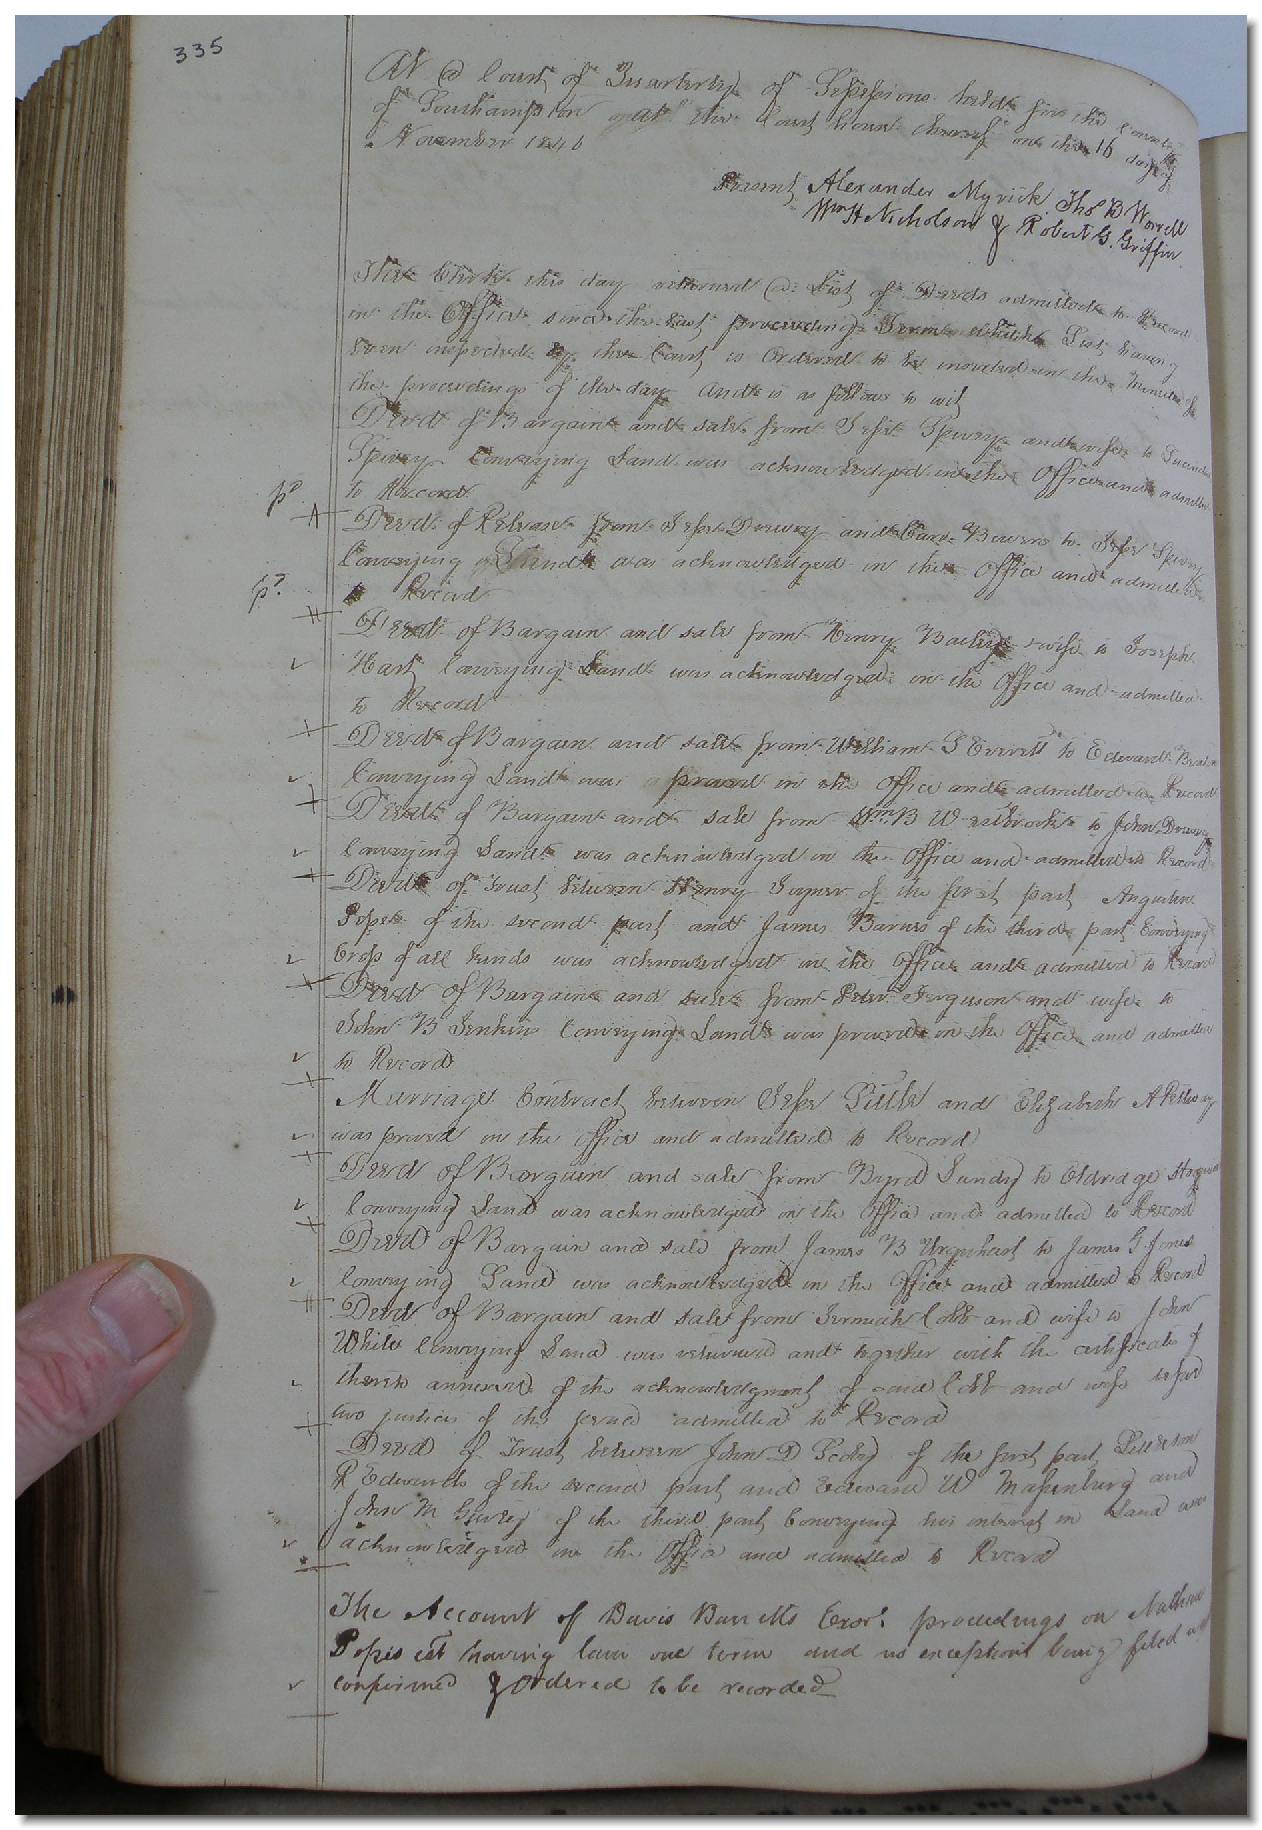 335
At a Court of Quarterly Sessions held for the County
of Southampton at the Court house thereof on the 16 day of
November 1846
Present Alexander Myrick Thos B Worrell
Wm H Nicholson & Robert G. Griffin
The Clerk this day returned a List of Deeds admitted to Record
in the Office since the last preceeding Term which List having
been inspected by the Court is Ordered to be inserted in the minutes of
the proceedings of the day and is as follows to wit
Deed of Bargain and sale from Jesse Spivey and wife to
Spivey Conveying Land was acknowledged in the Office and admitted
to Record
Deed of Release from Jesse Drewry and Bowers to Jesse Spivey
Conveying Land was acknowledged in the Office and admitted
to Record
Deed of Bargain and sale from Henry wife to Joseph
Hart Conveying Land was acknowledged in the Office and admitted
to Record
Deed of Bargain and sale from William Everitt to Edward
Conveying Land was proved in the Office and admitted to Record
Deed of Bargain and sale from Wm B Westbrook to John Drewry
Conveying Land was acknowledged in the Office and admitted to Record
Deed of Trust between Henry Joyner of the first part Augustin
Pope of the second part and James Barnes of the third part Conveying
Crop of all kinds was acknowledged in the Office and admitted to Record
Deed of Bargain and sale from Peter Ferguson and wife to
John B Jenkins Conveying Land was proved in the Office and admitted
to Record
Marriage Contract between Jesse Little and Elizabeth A
was proved in the Office and admitted to Record
Deed of Bargain and sale from Byrd Lundy to Eldridge
Conveying Land was acknowledged in the Office and admitted to Record
Deed of Bargain and sale from James B Urquhart to James G Jones
Conveying Land was acknowledged in the Office and admitted to Record
Deed of Bargain and sale from Jeremiah Cobb and wife to John
White Conveying Land was returned and together with the certificate of
thereto annexed of the acknowledgment of said Cobb and wife before
two justices of the peace admitted to Record
Deed of Trust between John D of the first part
R Edwards of the second part and Edward W Massenburg and
John M Gurley of the third part Conveying his interest in Land was
acknowledged in the Office and admitted to Record
The Account of Davis Barretts Exor. proceedings on Nathan
Popes est having lain one term and no exceptions being filed
confirmed & Ordered to be recorded